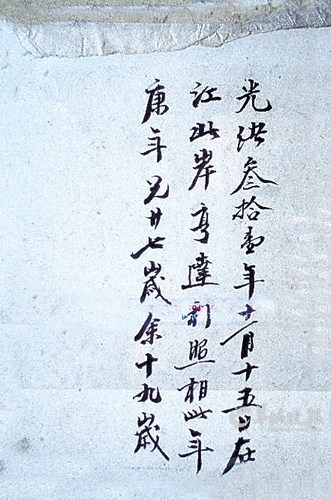 光緒叁拾壹年十一月十五日在
江北岸亨達利照相此年
康年兄廿七歲余十九歲